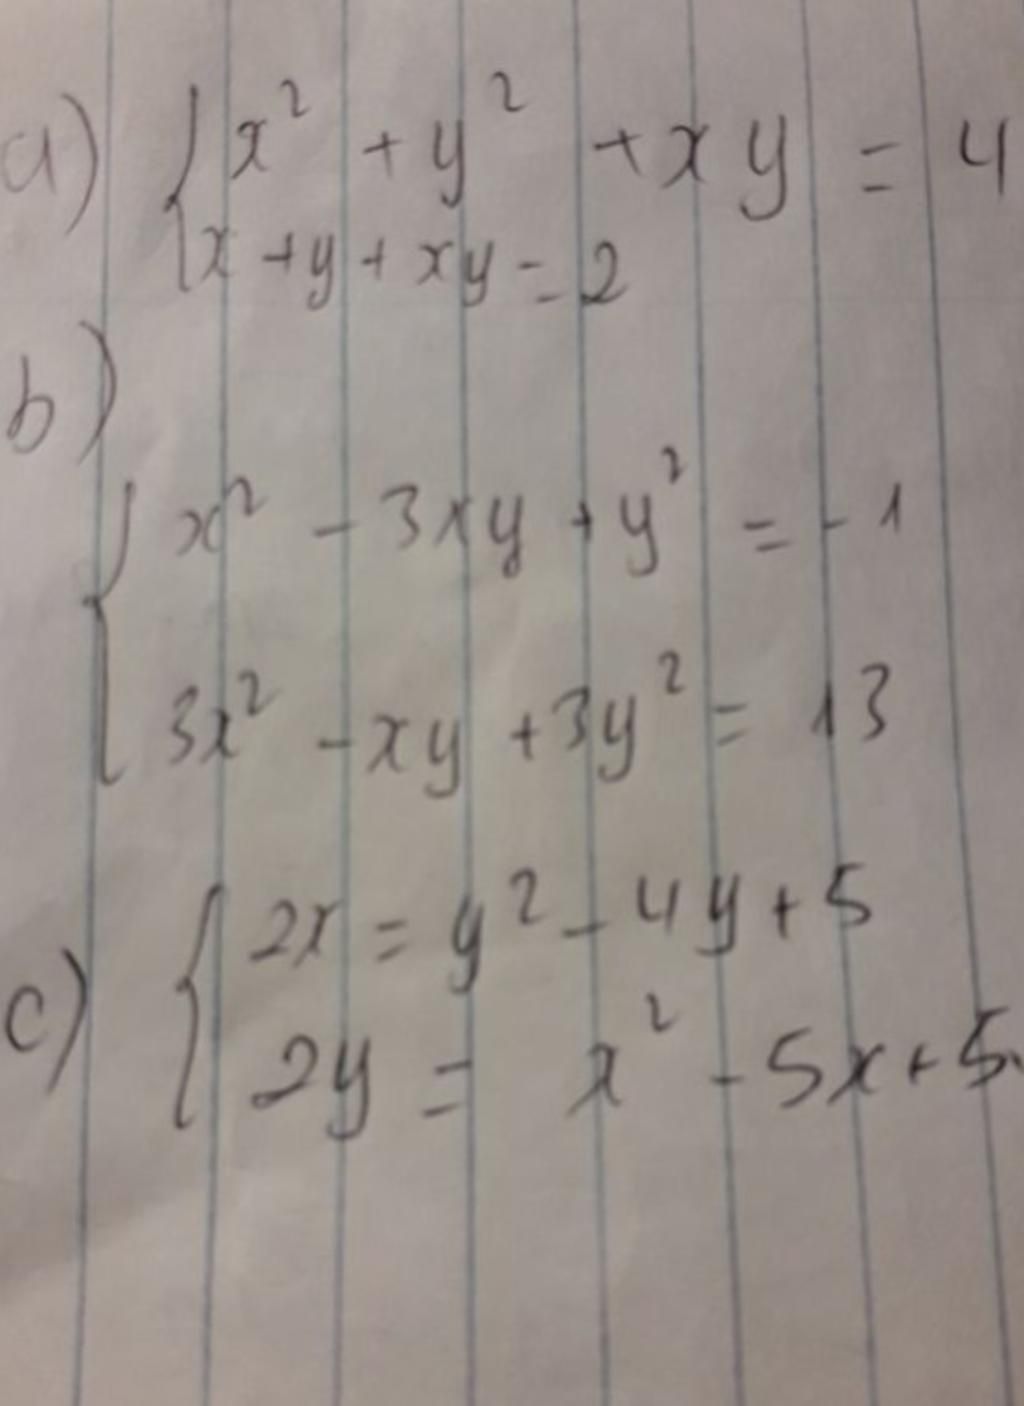 a) { x² + y² + xy = 4
x + y + xy = 2
b)
{ x² - 3xy + y² = -1
3x² - xy + 3y² = 13
c) { 2x = y² - 4y + 5
2y = x² - 5x + 5.